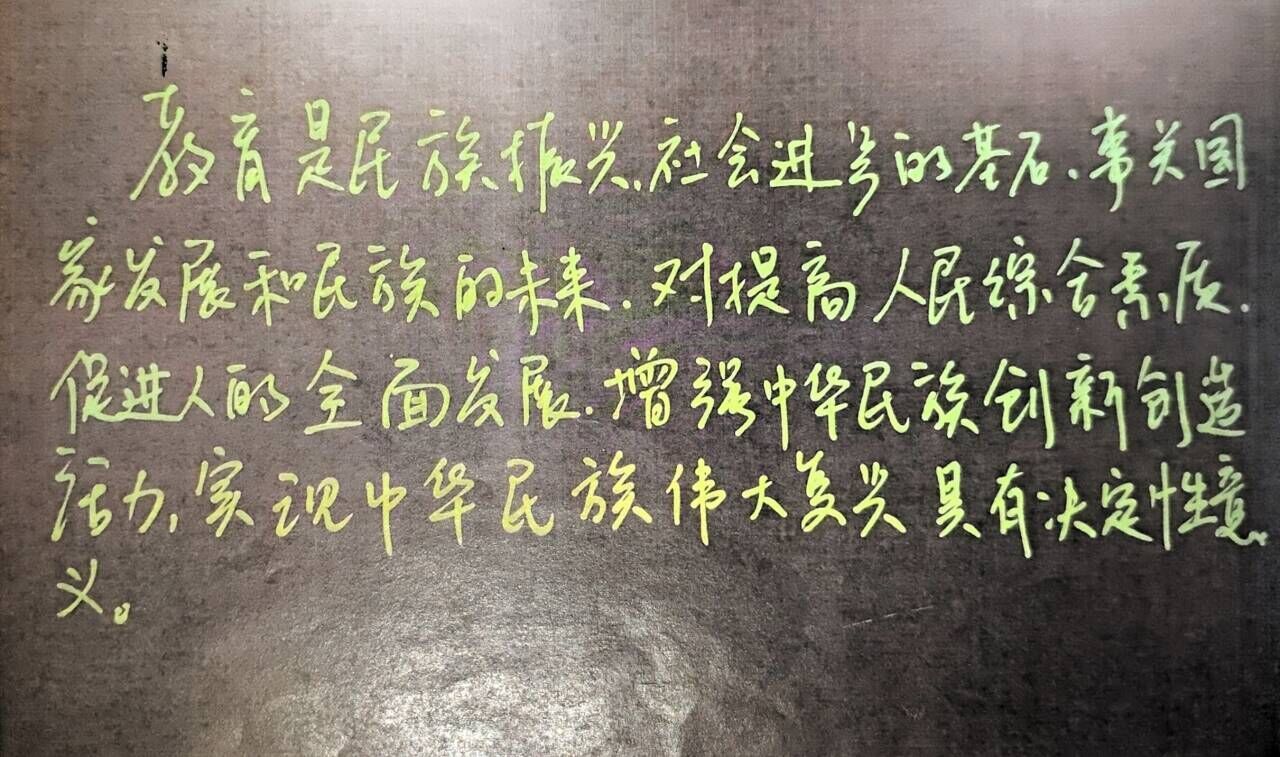 教育是民族振兴、社会进步的基石、事关国
家发展和民族的未来.对提高人民综合素质.
促进人的全面发展.增强中华民族创新创造
活力,实现中华民族伟大复兴具有决定性意
义。